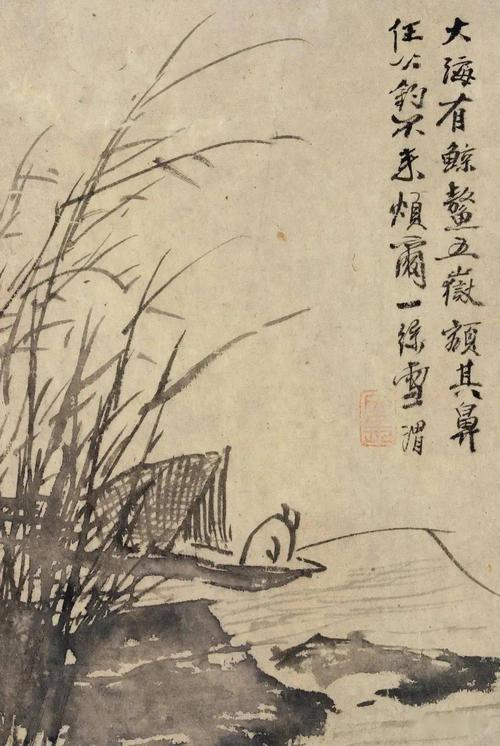 大海有鯨鰲五嶽額其鼻
任公釣不來煩爾一雪渭